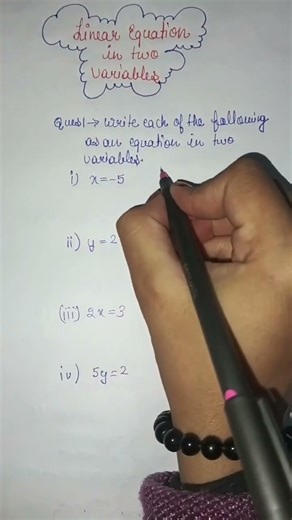 Linear Equation
in two
variables
Ques1→ Write each of the following
as an equation in two
variables.
i) x=-5
ii) y=2
(iii) 2x=3
iv) 5y=2